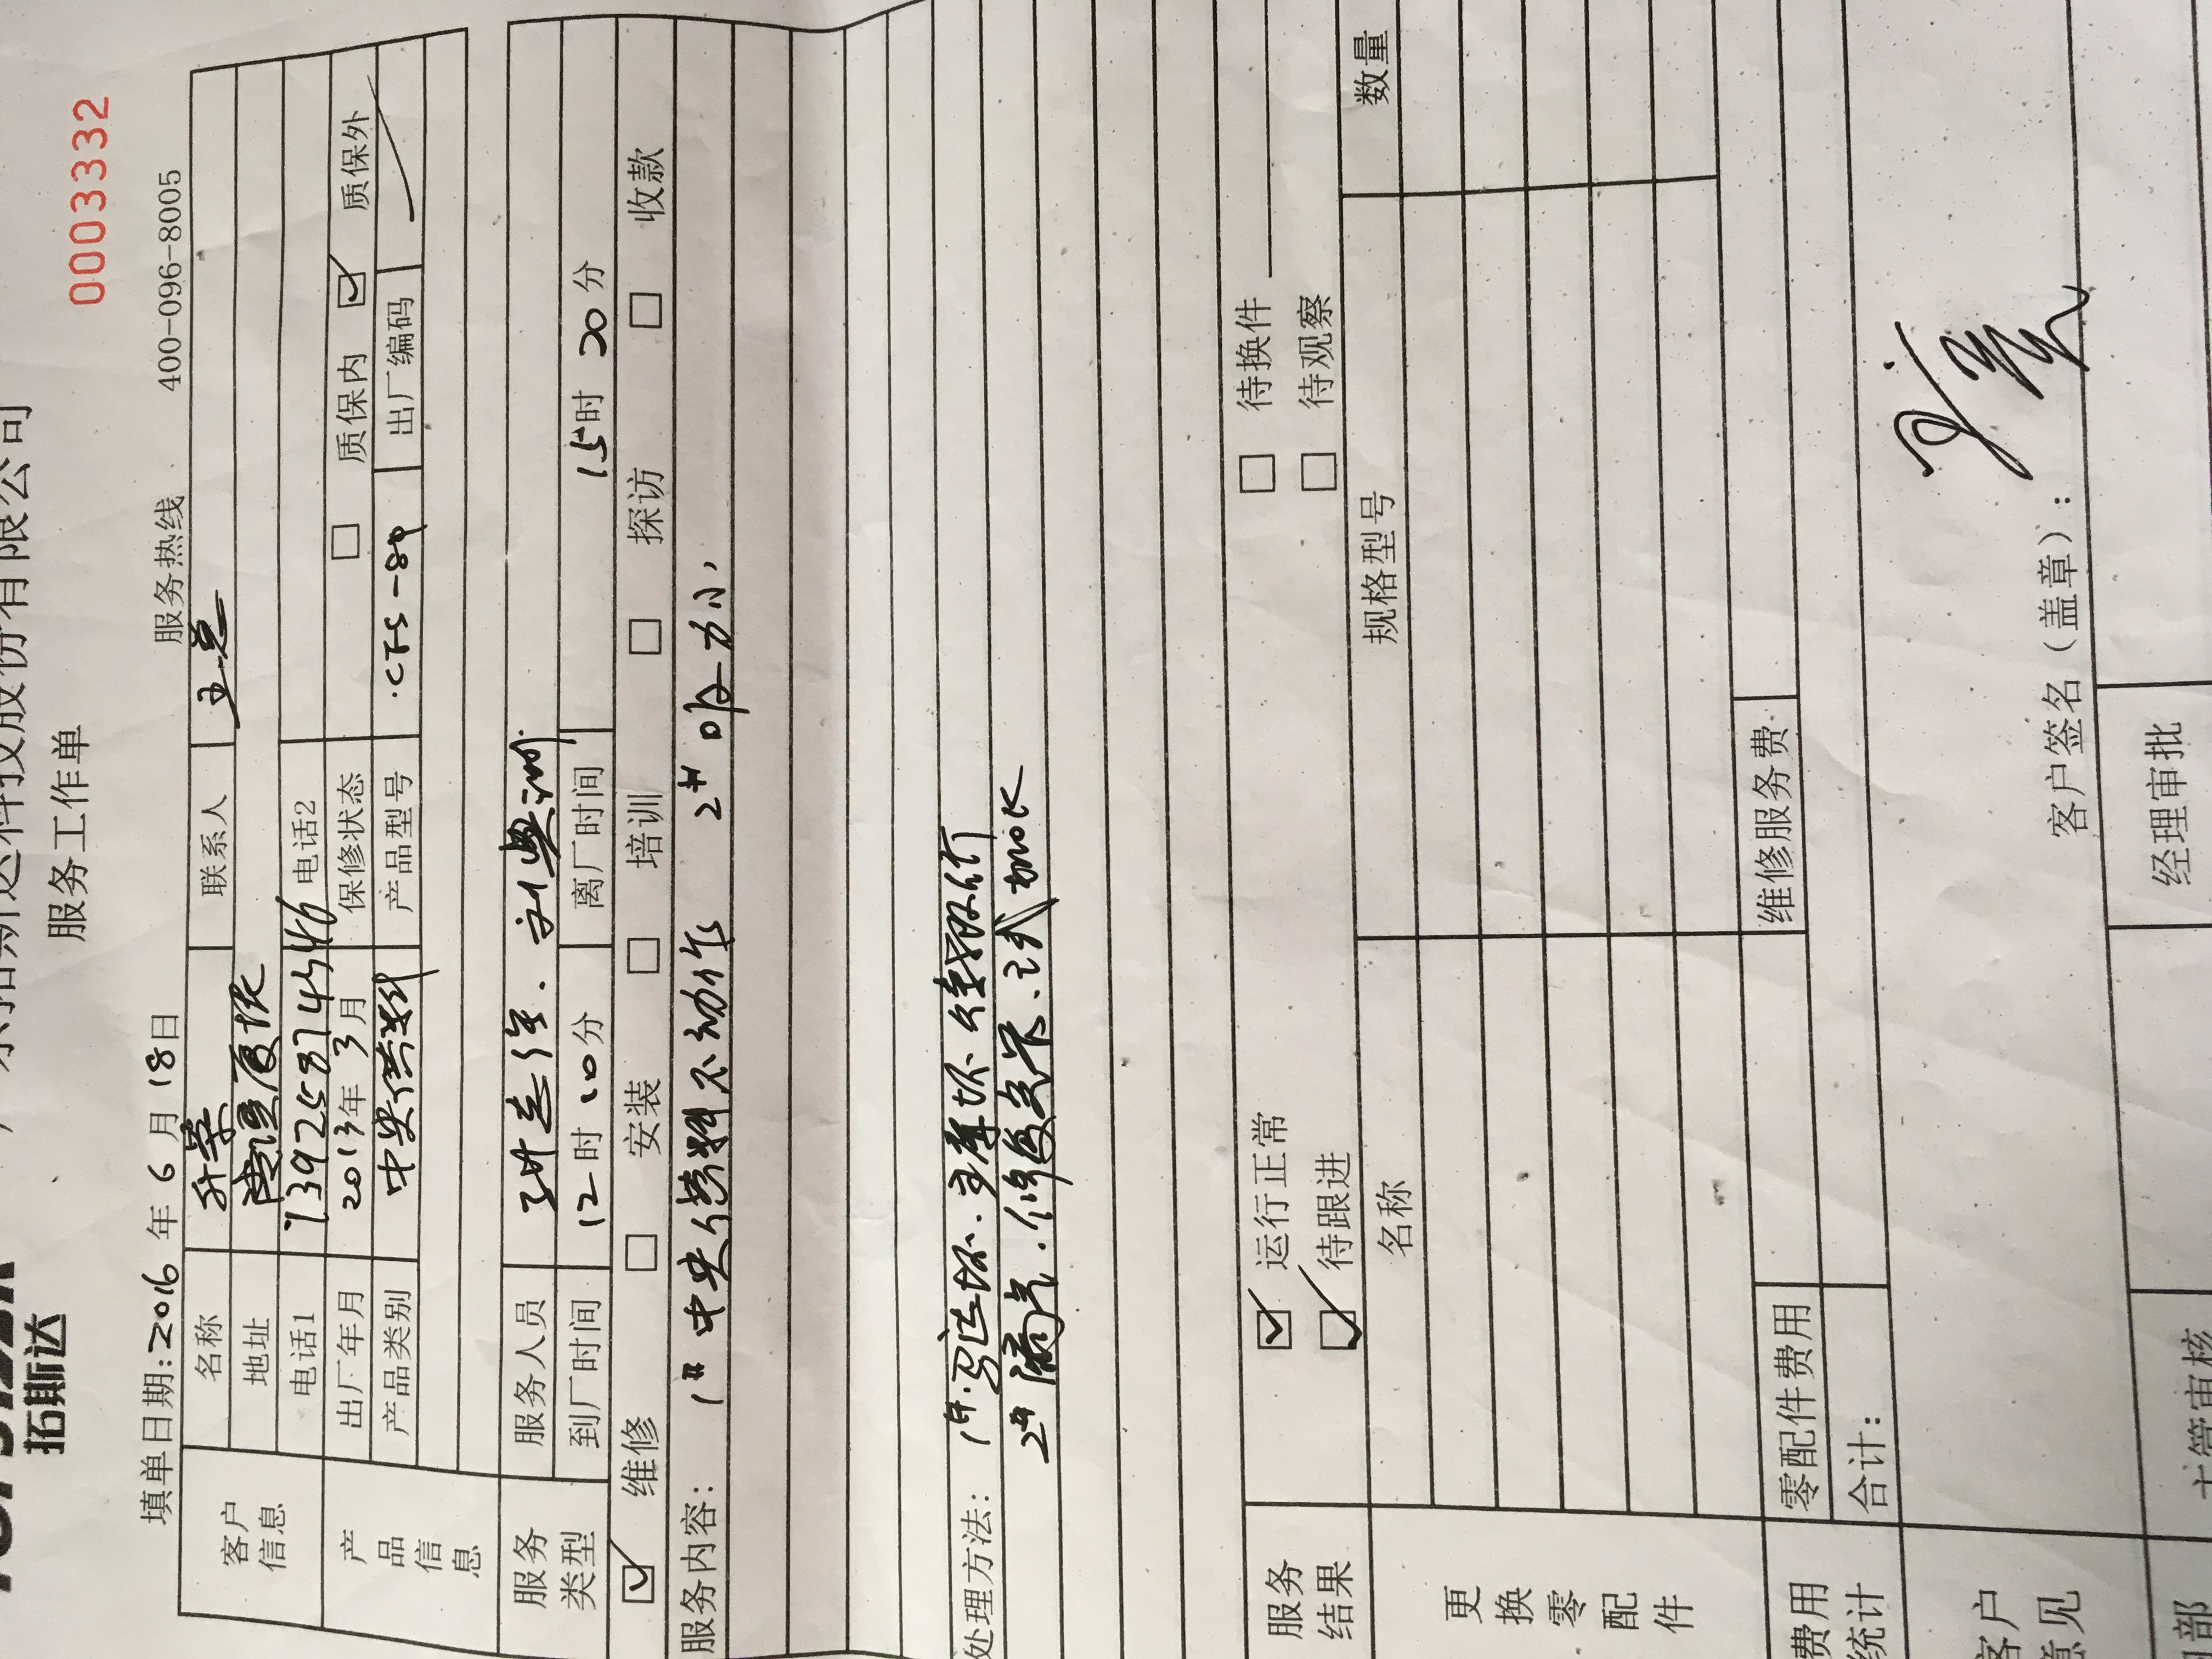 拓斯达
科技股份有限公司
服务工作单
0003332
填单日期:2016 年 6 月 18 日 服务热线 400-096-8005
客户信息
名称 升荣 联系人 王总
地址
电话1 13925874546 电话2
产品信息
出厂年月 2013年 3月 保修状态 □ 质保内 ☑ 质保外
产品类别 中央供料 产品型号 CTS-80 出厂编码
服务人员
到厂时间 12时 10分 离厂时间 15时 20分
服务类型
☑ 维修 □ 安装 □ 培训 □ 探访 □ 收款
服务内容: 1# 中央供料不动作 2# 吸力小,
处理方法: 1#.马达坏.
2# 漏气.修复 试 OK
服务结果
☑ 运行正常 □ 待换件
☑ 待跟进 □ 待观察
更换零配件
名称 规格型号 数量
费用统计
零配件费用 维修服务费
合计:
客户意见
客户签名(盖章):
主管审核 经理审批